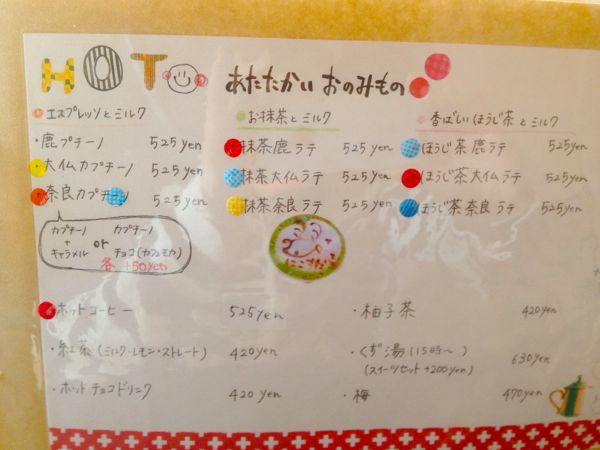 HOT あたたかい おのみもの
エスプレッソとミルク
・鹿プチーノ 525yen
・大仏カプチーノ 525yen
・奈良カプチーノ 525yen
カプチーノ + キャラメル or カプチーノ チョコ(カフェモカ)
各 +50yen
お抹茶とミルク
抹茶鹿ラテ 525yen
抹茶大仏ラテ 525yen
抹茶奈良ラテ 525yen
香ばしいほうじ茶とミルク
ほうじ茶鹿ラテ 525yen
ほうじ茶大仏ラテ 525yen
ほうじ茶奈良ラテ 525yen
ホットコーヒー 525yen
・紅茶(ミルク・レモン・ストレート) 420yen
・ホットチョコドリンク 420yen
・柚子茶 420yen
・くず湯(15時〜) 630yen
(スイーツセット+200yen)
・梅 470yen